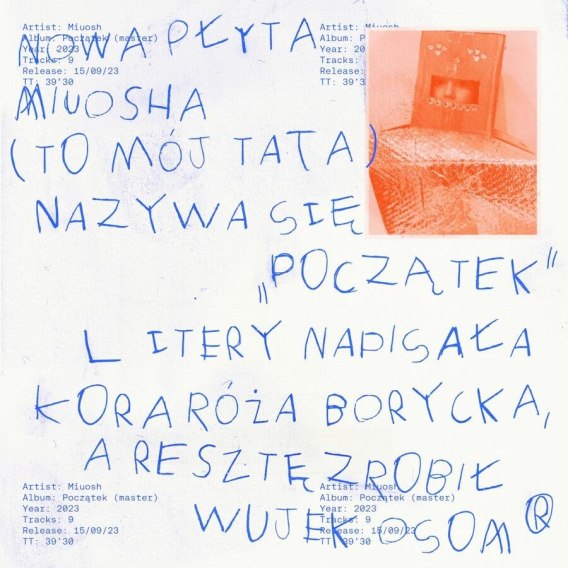 Artist: Miuosh
Album: Początek (master)
Year: 2023
Tracks: 9
Release: 15/09/23
TT: 39'30
Artist: Miuosh
Album: P
Year: 20
Tracks:
Release:
TT: 39'30
NOWA PŁYTA
MIUOSHA
(TO MÓJ TATA)
NAZYWA SIĘ
„POCZĄTEK”
LITERY NAPISAŁA
KORARÓŻA BORYCKA,
A RESZTĘ ZROBIŁ
WUJEK OSOM ®
Artist: Miuosh
Album: Początek (master)
Year: 2023
Tracks: 9
Release: 15/09/23
TT: 39'30
Artist: Miuosh
Album: Początek (master)
Year: 2023
Tracks: 9
Release: 15/09/23
TT: 39'30